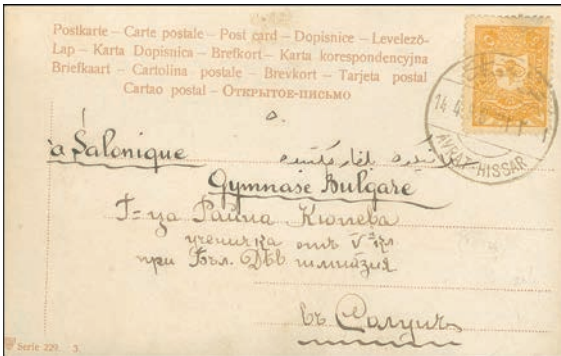 Postkarte – Carte postale – Post card – Dopisnice – Levelező-
Lap – Karta Dopisnica – Brefkort – Karta korespondencyjna
Briefkaart – Cartolina postale – Brevkort – Tarjeta postal
Cartao postal – Открытое-письмо
14 4
AVRAT-HISSAR
à Salonique
Gymnase Bulgare
Г=ца Райна
ученичка отъ V кл
при Бъл. Дѣв
въ Солунъ
Serie 229. 3.